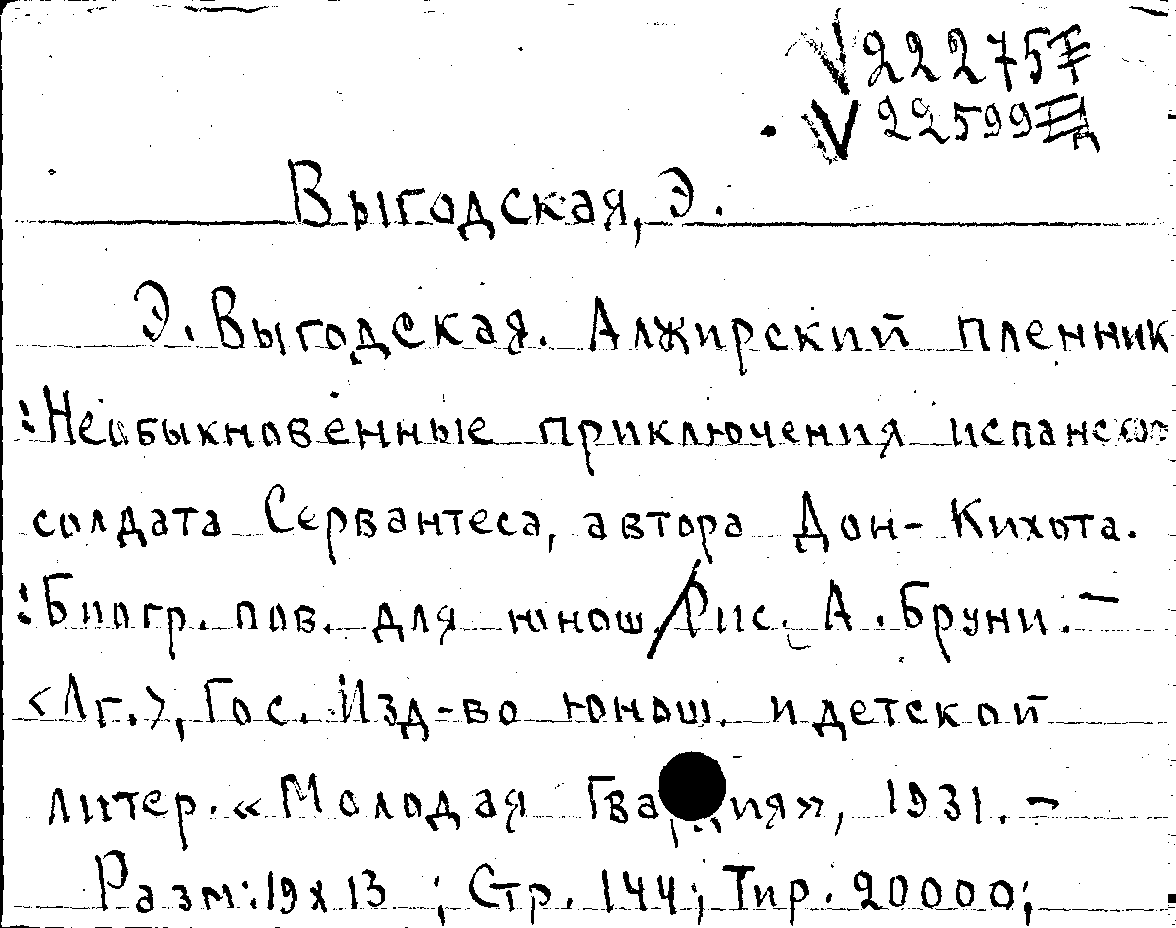 √22275
√22599
Выгодская, Э.
Э. Выгодская. Алжирский пленник
:Необыкновенные приключения испанского
солдата Сервантеса, автора Дон-Кихота.
:Биогр. пов. для юнош./Рис. А. Бруни. —
<Лг.>, Гос. Изд-во юнош. и детской
литер. «Молодая Гвардия», 1931. —
Разм: 19x13 ; Стр. 144; Тир. 20000;